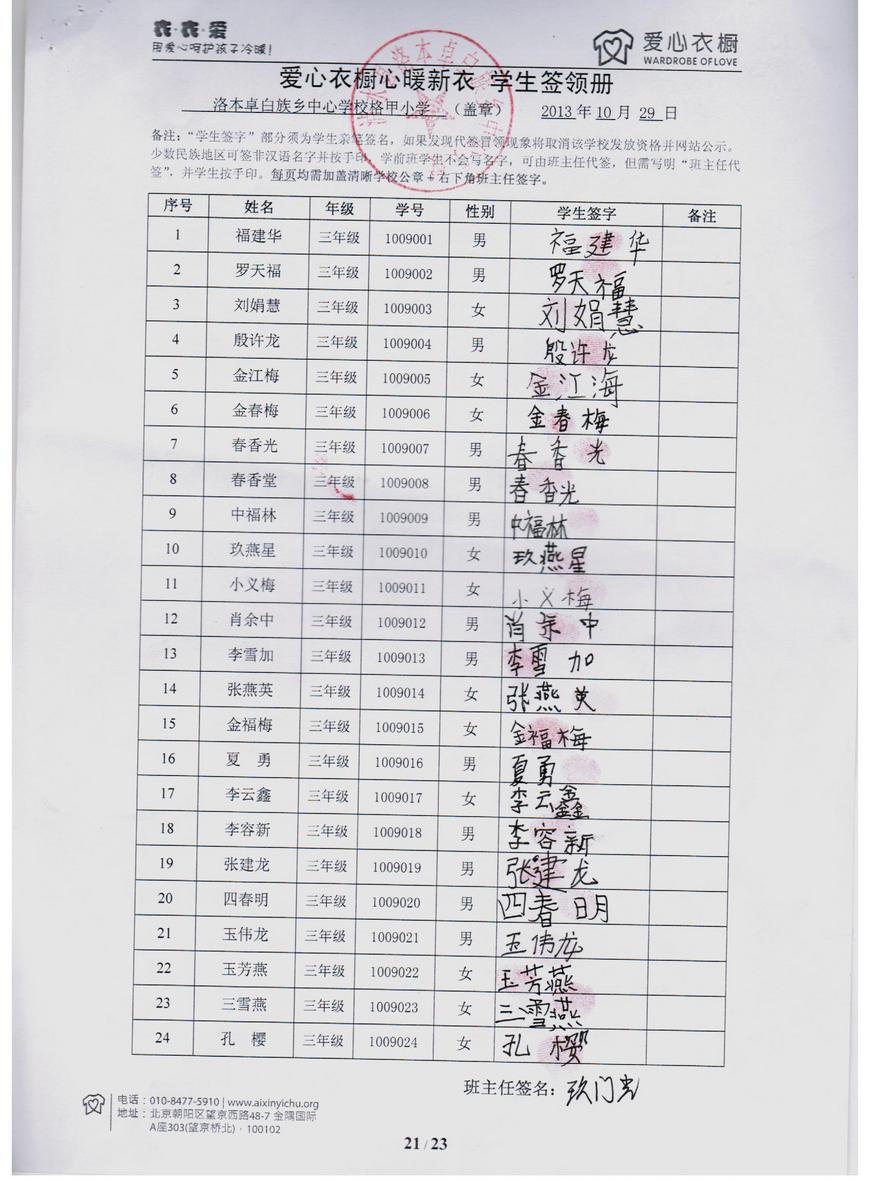 衣·衣·爱
用爱心呵护孩子冷暖!
爱心衣橱
WARDROBE OF LOVE
爱心衣橱心暖新衣 学生签领册
洛本卓白族乡中心学校格甲小学 (盖章) 2013 年 10 月 29 日
备注:“学生签字”部分须为学生亲笔签名,如果发现代签冒领现象将取消该学校发放资格并网站公示。
少数民族地区可签非汉语名字并按手印,学前班学生不会写名字,可由班主任代签,但需写明“班主任代
签”,并学生按手印。每页均需加盖清晰学校公章+右下角班主任签字。
序号 姓名 年级 学号 性别 学生签字 备注
1 福建华 三年级 1009001 男 福建华
2 罗天福 三年级 1009002 男 罗天福
3 刘娟慧 三年级 1009003 女 刘娟慧
4 殷许龙 三年级 1009004 男 殷许龙
5 金江梅 三年级 1009005 女 金江海
6 金春梅 三年级 1009006 女 金春梅
7 春香光 三年级 1009007 男 春香光
8 春香堂 三年级 1009008 男 春香光
9 中福林 三年级 1009009 男 中福林
10 玖燕星 三年级 1009010 女 玖燕星
11 小义梅 三年级 1009011 女 小义梅
12 肖余中 三年级 1009012 男 肖余中
13 李雪加 三年级 1009013 男 李雪加
14 张燕英 三年级 1009014 女 张燕英
15 金福梅 三年级 1009015 女 金福梅
16 夏 勇 三年级 1009016 男 夏勇
17 李云鑫 三年级 1009017 女 李云鑫
18 李容新 三年级 1009018 男 李容新
19 张建龙 三年级 1009019 男 张建龙
20 四春明 三年级 1009020 男 四春明
21 玉伟龙 三年级 1009021 男 玉伟龙
22 玉芳燕 三年级 1009022 女 玉芳燕
23 三雪燕 三年级 1009023 女 三雪燕
24 孔 樱 三年级 1009024 女 孔樱
班主任签名:玖门光
电话:010-8477-5910 | www.aixinyichu.org
地址:北京朝阳区望京西路48-7 金隅国际
A座303(望京桥北),100102
21 / 23